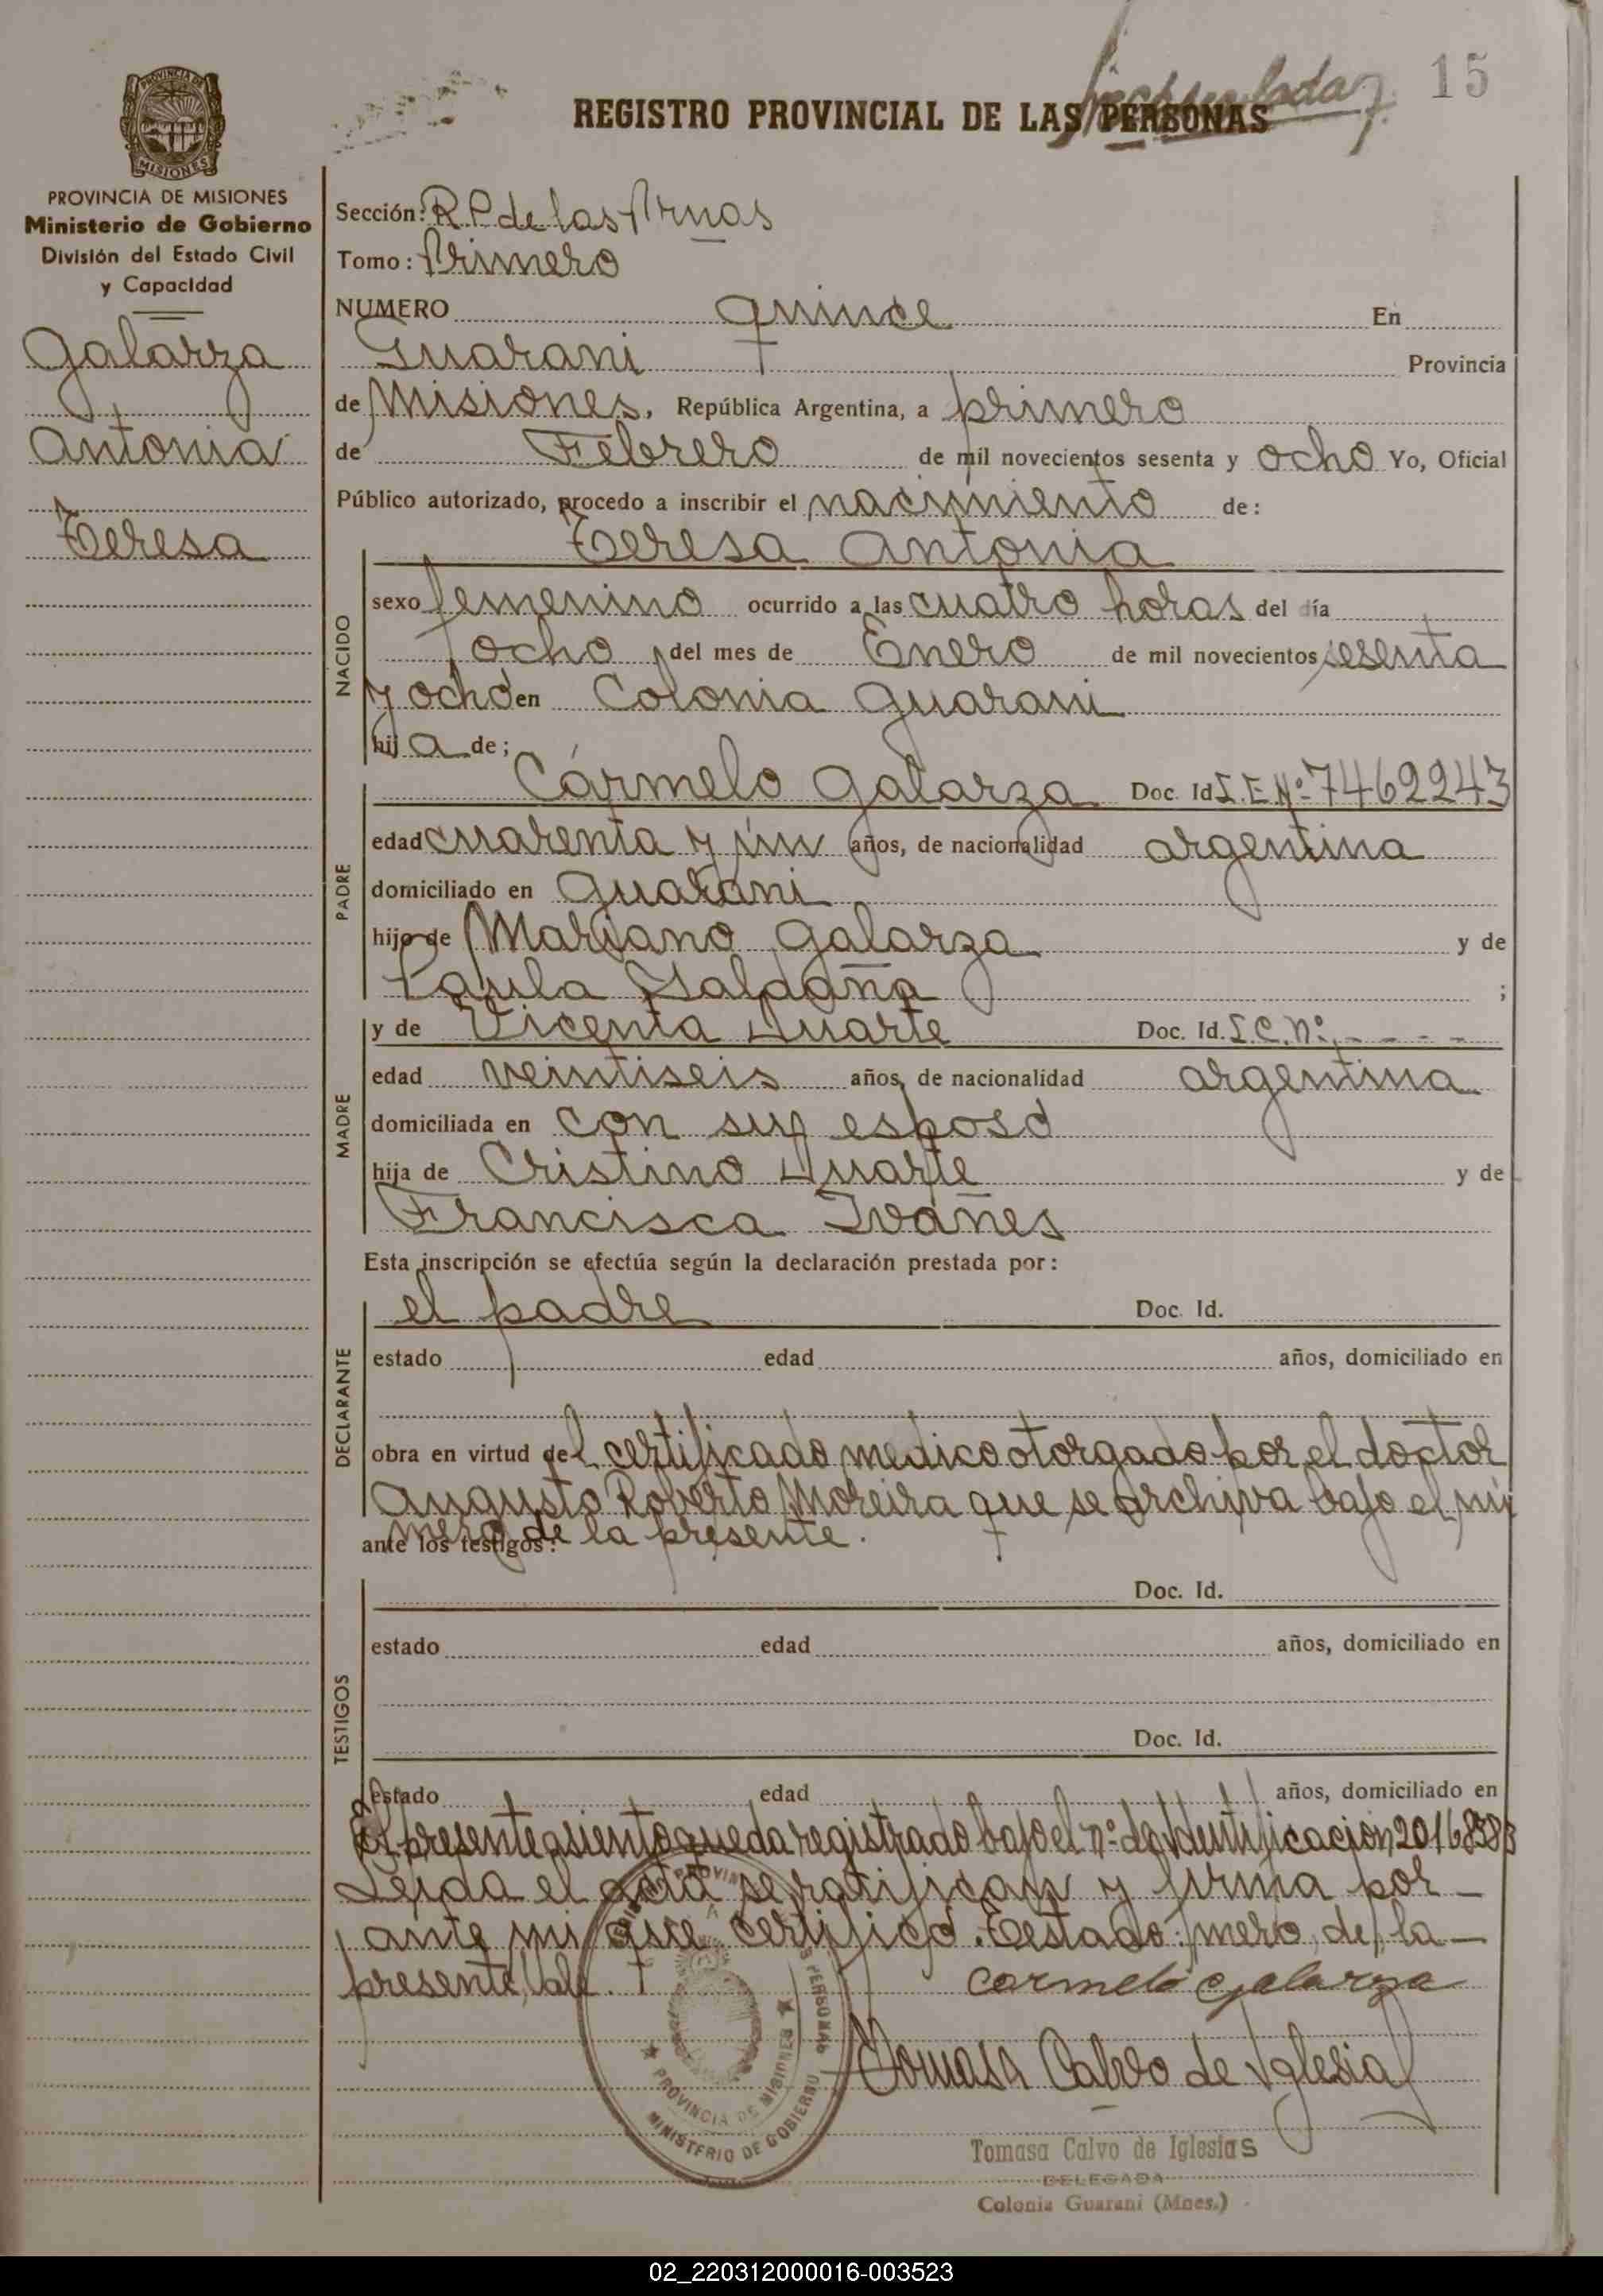 15
REGISTRO PROVINCIAL DE LAS PERSONAS
PROVINCIA DE MISIONES
PROVINCIA DE MISIONES
Ministerio de Gobierno
División del Estado Civil
y Capacidad
Galarza
Antonia
Teresa
Sección: R.P. de las Prnas
Tomo: Primero
NUMERO quince En
Guarani Provincia
de Misiones, República Argentina, a primero
de Febrero de mil novecientos sesenta y ocho Yo, Oficial
Público autorizado, procedo a inscribir el nacimiento de:
Teresa Antonia
NACIDO
sexo femenino ocurrido a las cuatro horas del día
ocho del mes de Enero de mil novecientos sesenta
y ocho en Colonia Guarani
hija de;
PADRE
Cármelo Galarza Doc. Id L.E Nº 7462243
edad cuarenta y un años, de nacionalidad argentina
domiciliado en Guarani
hijo de Mariano Galarza y de
Paula Saldaña ;
MADRE
y de Vicenta Duarte Doc. Id. L.C. Nº - - - -
edad veintiseis años, de nacionalidad argentina
domiciliada en con su esposo
hija de Cristino Duarte y de
Francisca Ivañes
Esta inscripción se efectúa según la declaración prestada por:
DECLARANTE
el padre Doc. Id.
estado edad años, domiciliado en
obra en virtud del certificado medico otorgado por el doctor
Augusto Roberto Moreira que se archiva bajo el nú
mero de la presente.
ante los testigos:
TESTIGOS
Doc. Id.
estado edad años, domiciliado en
Doc. Id.
estado edad años, domiciliado en
El presente asiento queda registrado bajo el nº de identificacion
Leida el acta se ratifican y firma por
ante mi que certifico. Testado: mero, de, la
presente, vale.
Carmelo Galarza
Tomasa Calvo de Iglesias
PROVINCIA DE MISIONES
MINISTERIO DE GOBIERNO
Tomasa Calvo de Iglesias
DELEGADA
Colonia Guarani (Mnes.)
02_220312000016-003523